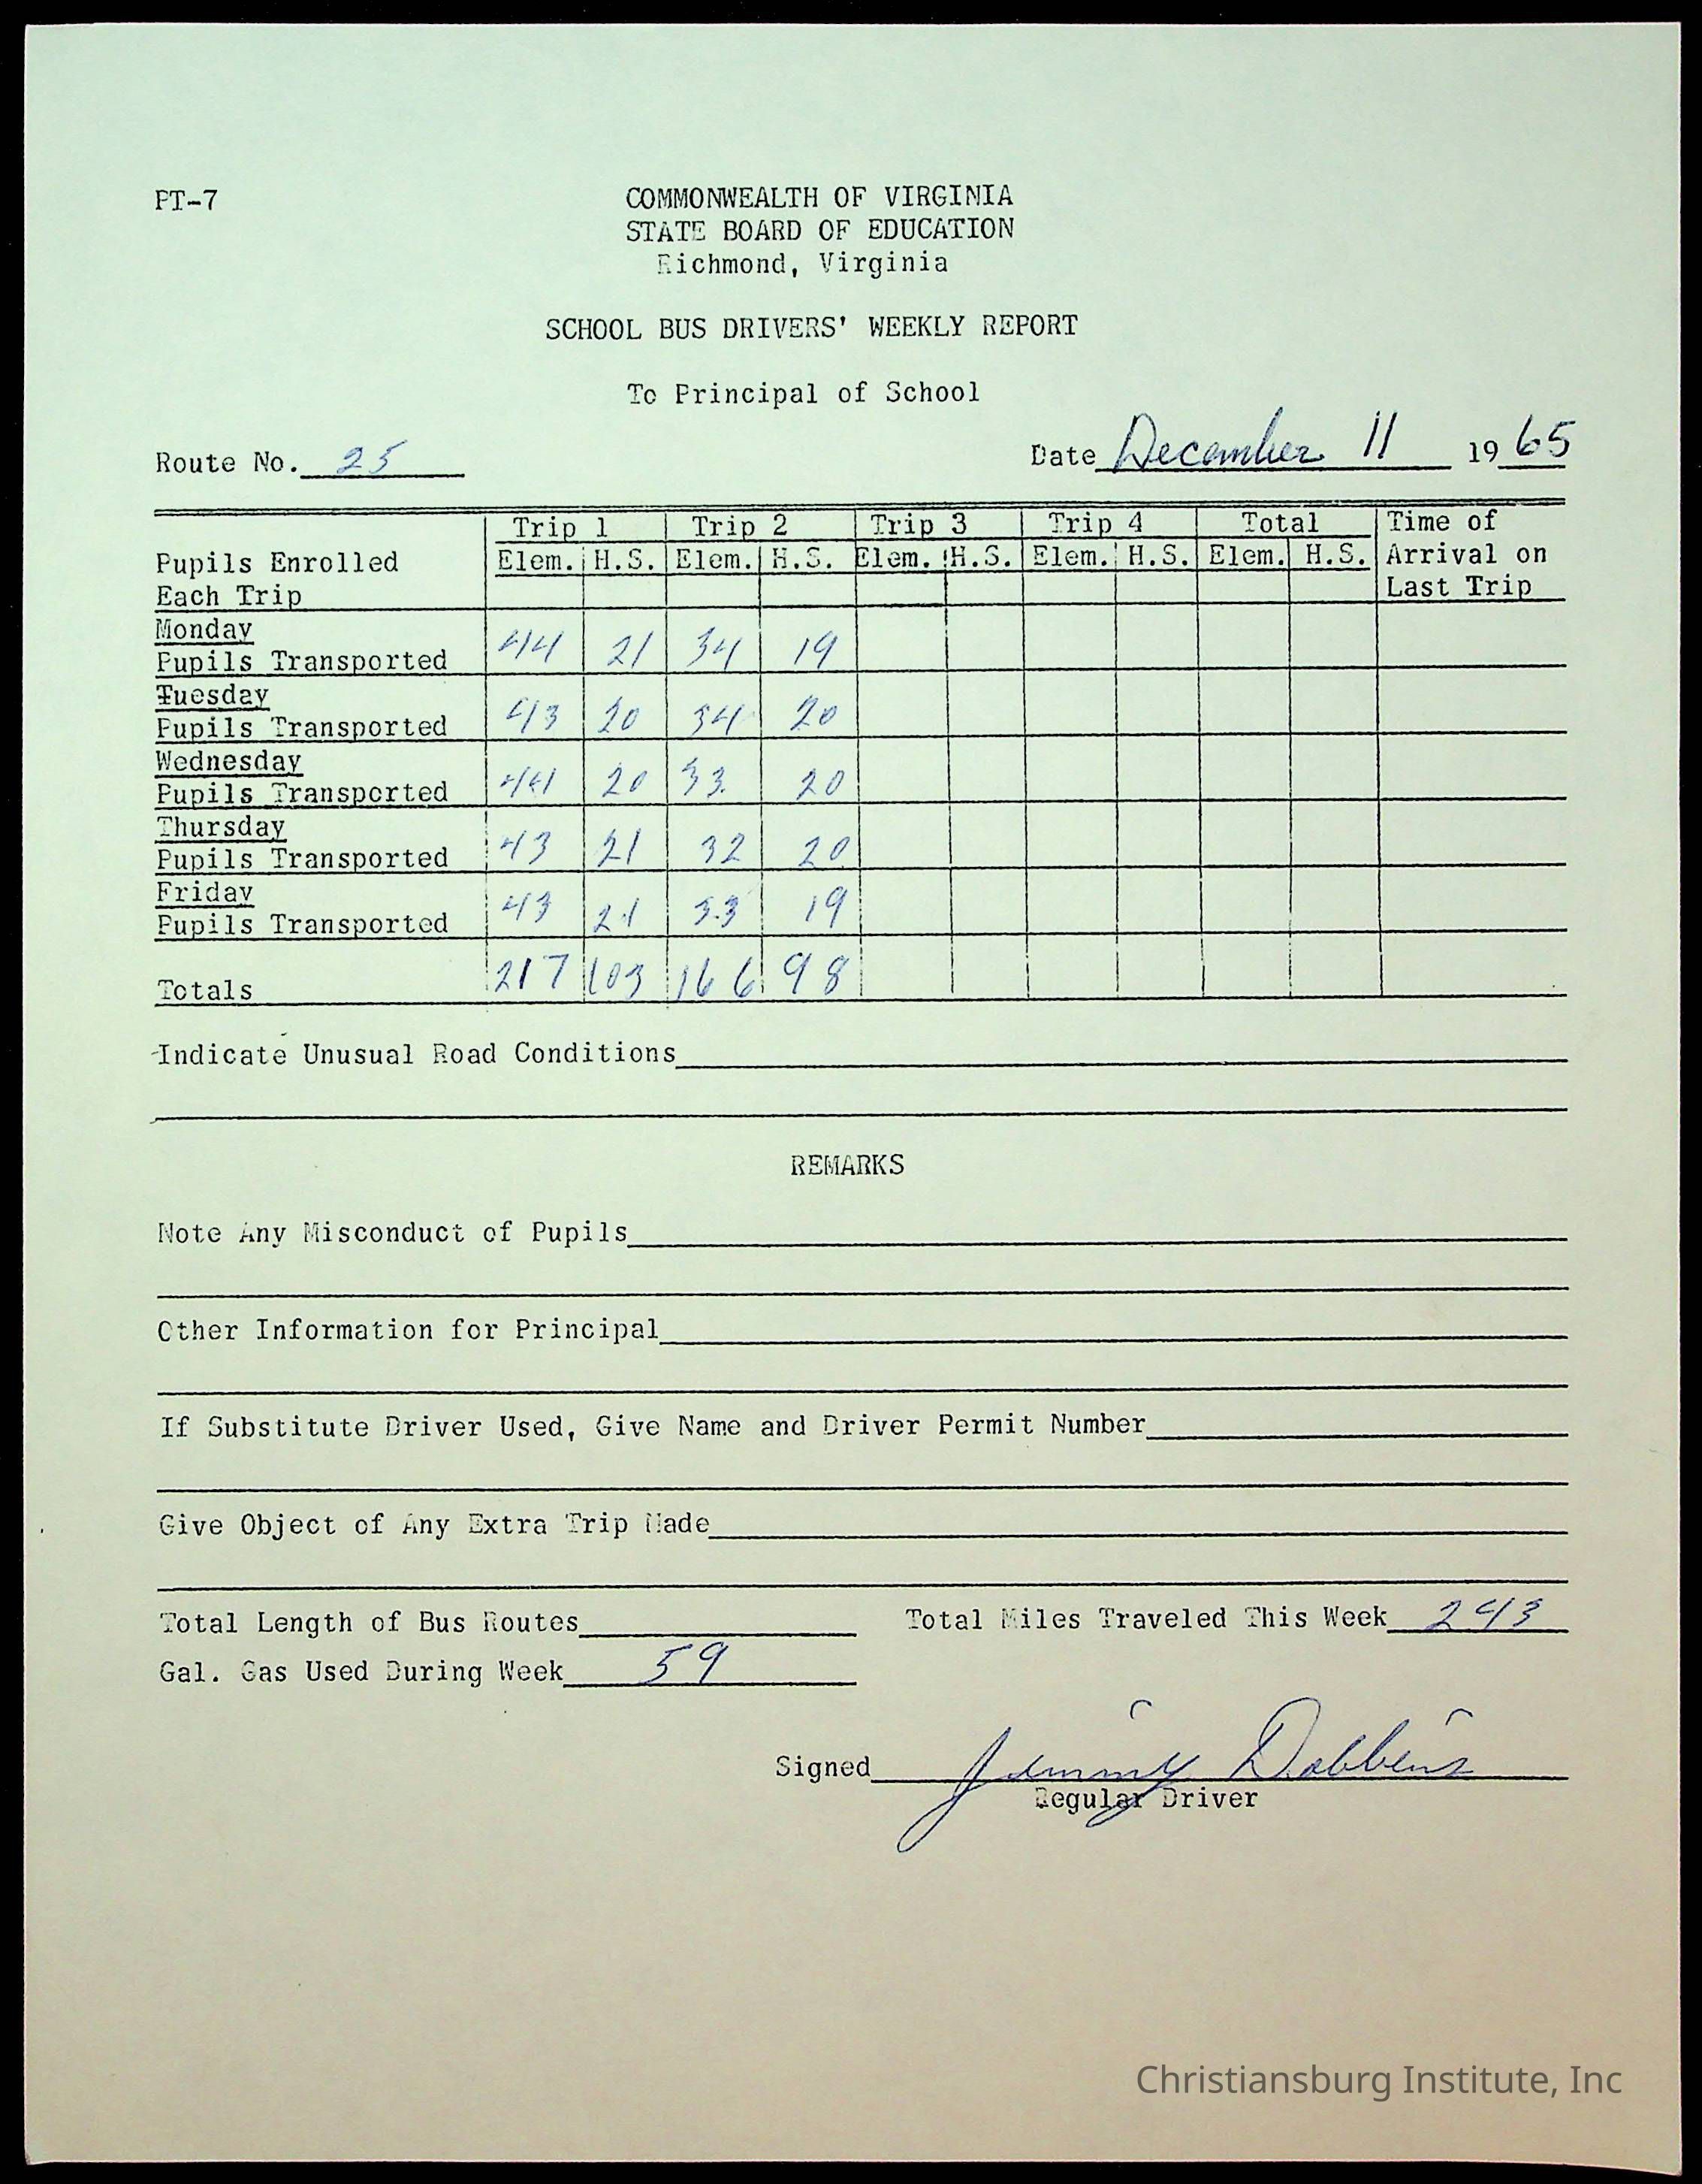 PT-7
COMMONWEALTH OF VIRGINIA
STATE BOARD OF EDUCATION
Richmond, Virginia
SCHOOL BUS DRIVERS' WEEKLY REPORT
To Principal of School
Route No. 25 Date December 11 1965
Trip 1 Trip 2 Trip 3 Trip 4 Total Time of
Pupils Enrolled Elem. H.S. Elem. H.S. Elem. H.S. Elem. H.S. Elem. H.S. Arrival on
Each Trip Last Trip
Monday
Pupils Transported 44 21 34 19
Tuesday
Pupils Transported 43 20 34 20
Wednesday
Pupils Transported 44 20 33 20
Thursday
Pupils Transported 43 21 32 20
Friday
Pupils Transported 43 21 33 19
Totals 217 103 166 98
Indicate Unusual Road Conditions
REMARKS
Note Any Misconduct of Pupils
Other Information for Principal
If Substitute Driver Used, Give Name and Driver Permit Number
Give Object of Any Extra Trip Made
Total Length of Bus Routes Total Miles Traveled This Week 243
Gal. Gas Used During Week 59
Signed Jimmy Dobbins
Regular Driver
Christiansburg Institute, Inc